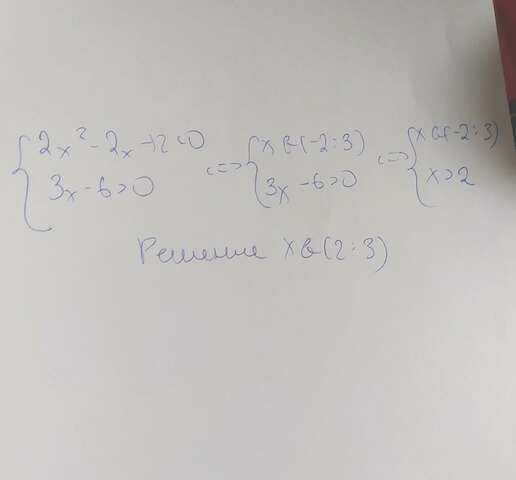 { 2x² - 2x - 12 < 0 <=> { x ∈ (-2 : 3) <=> { x ∈ (-2 : 3)
3x - 6 > 0 3x - 6 > 0 x > 2
Решение x ∈ (2 : 3)